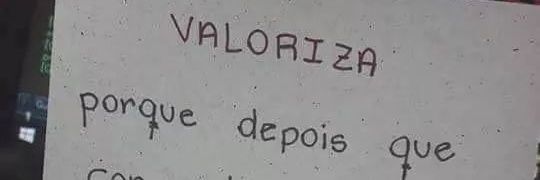 VALORIZA
porque depois que